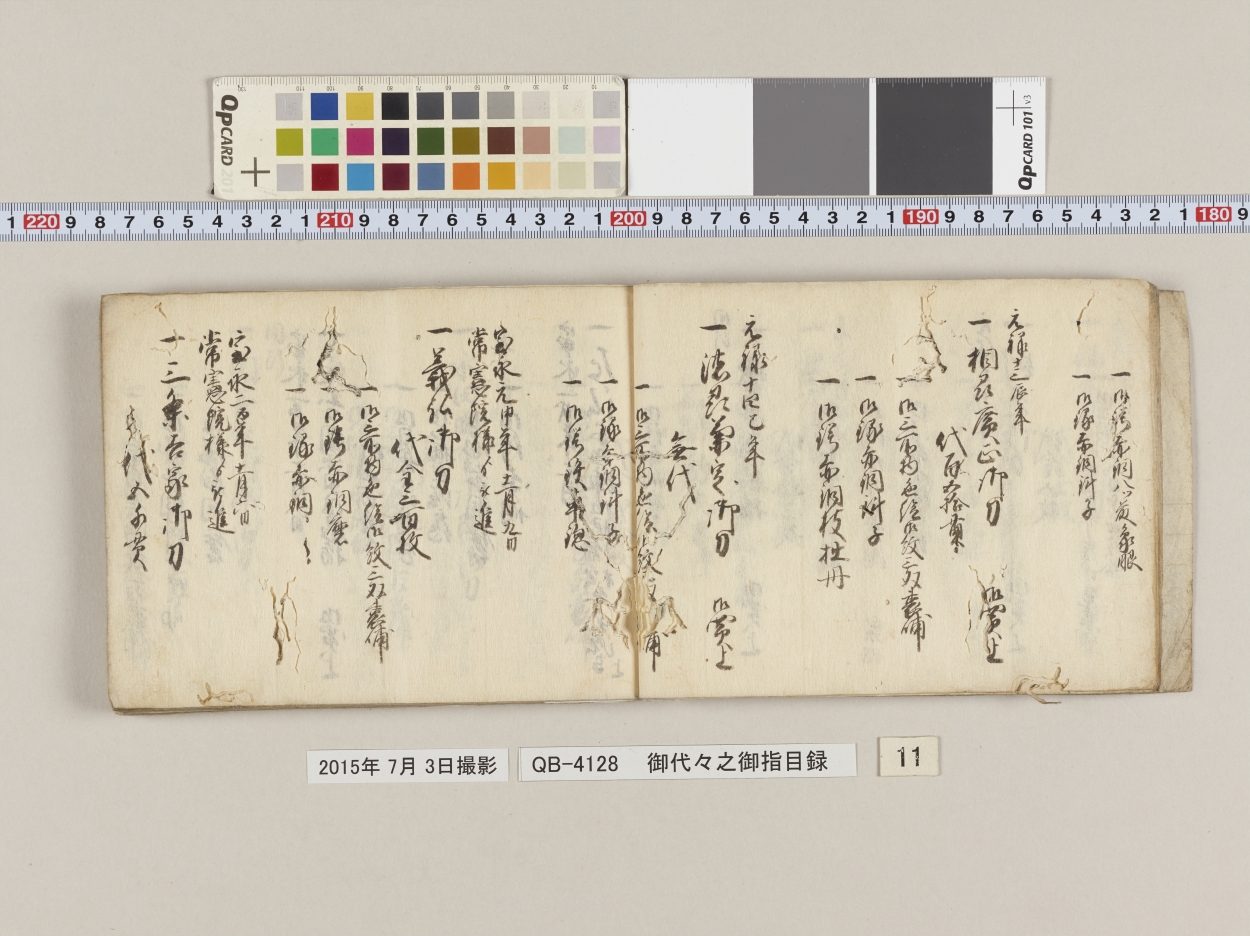 一御鍔赤銅八角象眼
一御縁赤銅斜子
元禄十三辰年
一相州廣正御刀 御買上
代百五拾貫
一御三所物色絵御紋二双裏備
一御縁赤銅斜子
一御鍔赤銅枝牡丹
元禄十四巳年
一法界兼定御刀 御買上
無代
一御三所物色絵御紋
一御縁赤銅斜子
一御鍔鉄
宝永元申年十二月九日
常憲院様より被進
一義弘御刀
代金二百枚
一御三所物色絵御紋二双裏備
一御鍔赤銅磨
一御縁赤銅
宝永二酉年十一月
常憲院様より被進
一三条吉家御刀
代五千貫
QPCARD 201
QPCARD 101 v3
1 220 9 8 7 6 5 4 3 2 1 210 9 8 7 6 5 4 3 2 1 200 9 8 7 6 5 4 3 2 1 190 9 8 7 6 5 4 3 2 1 180 9
2015年 7月 3日撮影
QB-4128 御代々之御指目録
11